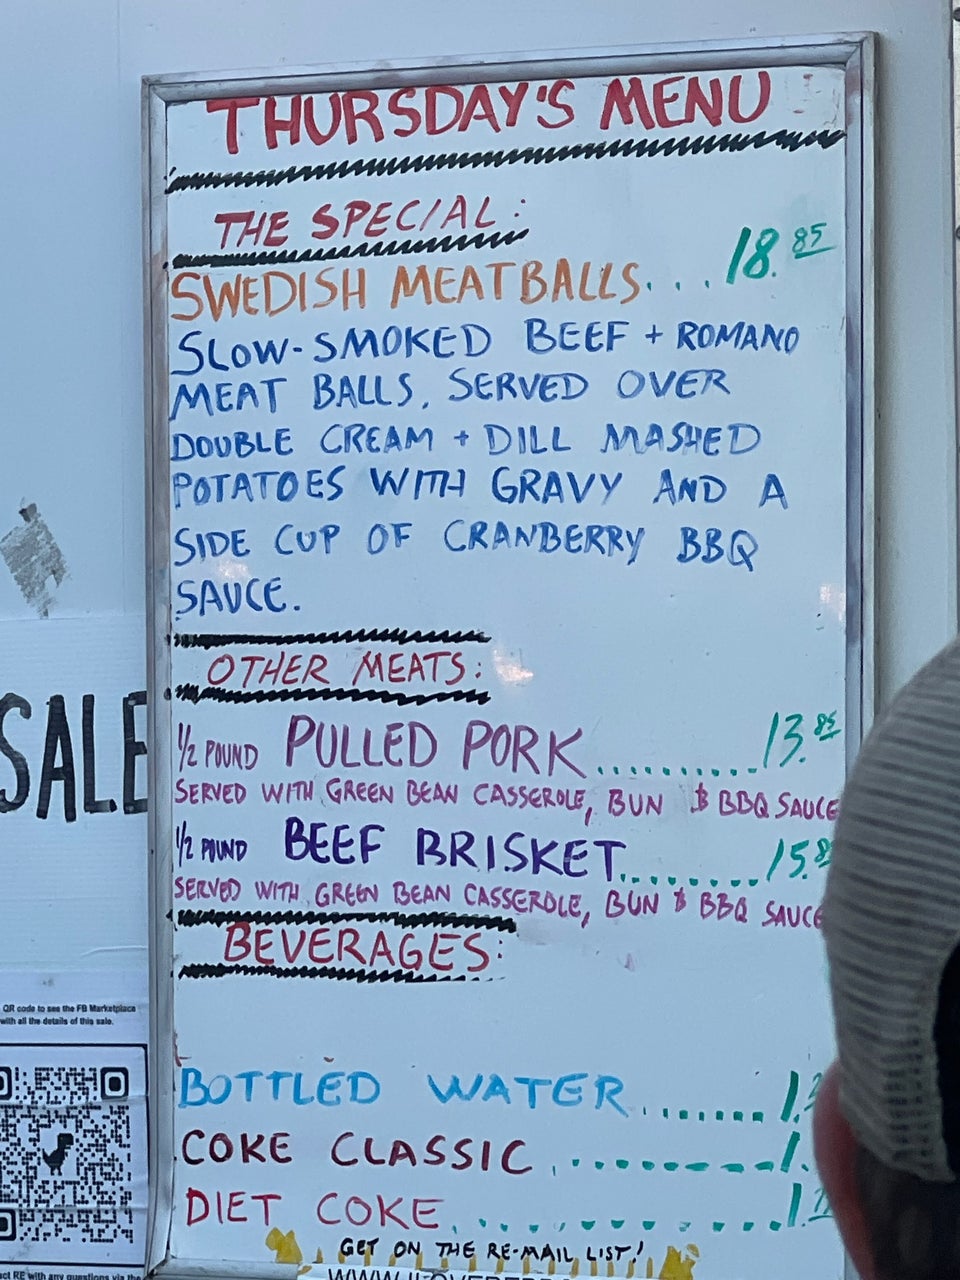 THURSDAY'S MENU
THE SPECIAL:
SWEDISH MEATBALLS.... 18.85
SLOW-SMOKED BEEF + ROMANO
MEAT BALLS, SERVED OVER
DOUBLE CREAM + DILL MASHED
POTATOES WITH GRAVY AND A
SIDE CUP OF CRANBERRY BBQ
SAUCE.
OTHER MEATS:
1/2 POUND PULLED PORK............ 13.85
SERVED WITH GREEN BEAN CASSEROLE, BUN & BBQ SAUCE
1/2 POUND BEEF BRISKET......... 15.8
SERVED WITH GREEN BEAN CASSEROLE, BUN & BBQ SAUCE
BEVERAGES:
BOTTLED WATER......... 1.
COKE CLASSIC.......... 1.
DIET COKE.......... 1.
GET ON THE RE-MAIL LIST!
SALE
QR code to see the FB Marketplace
with all the details of this sale.
RE with any questions via the